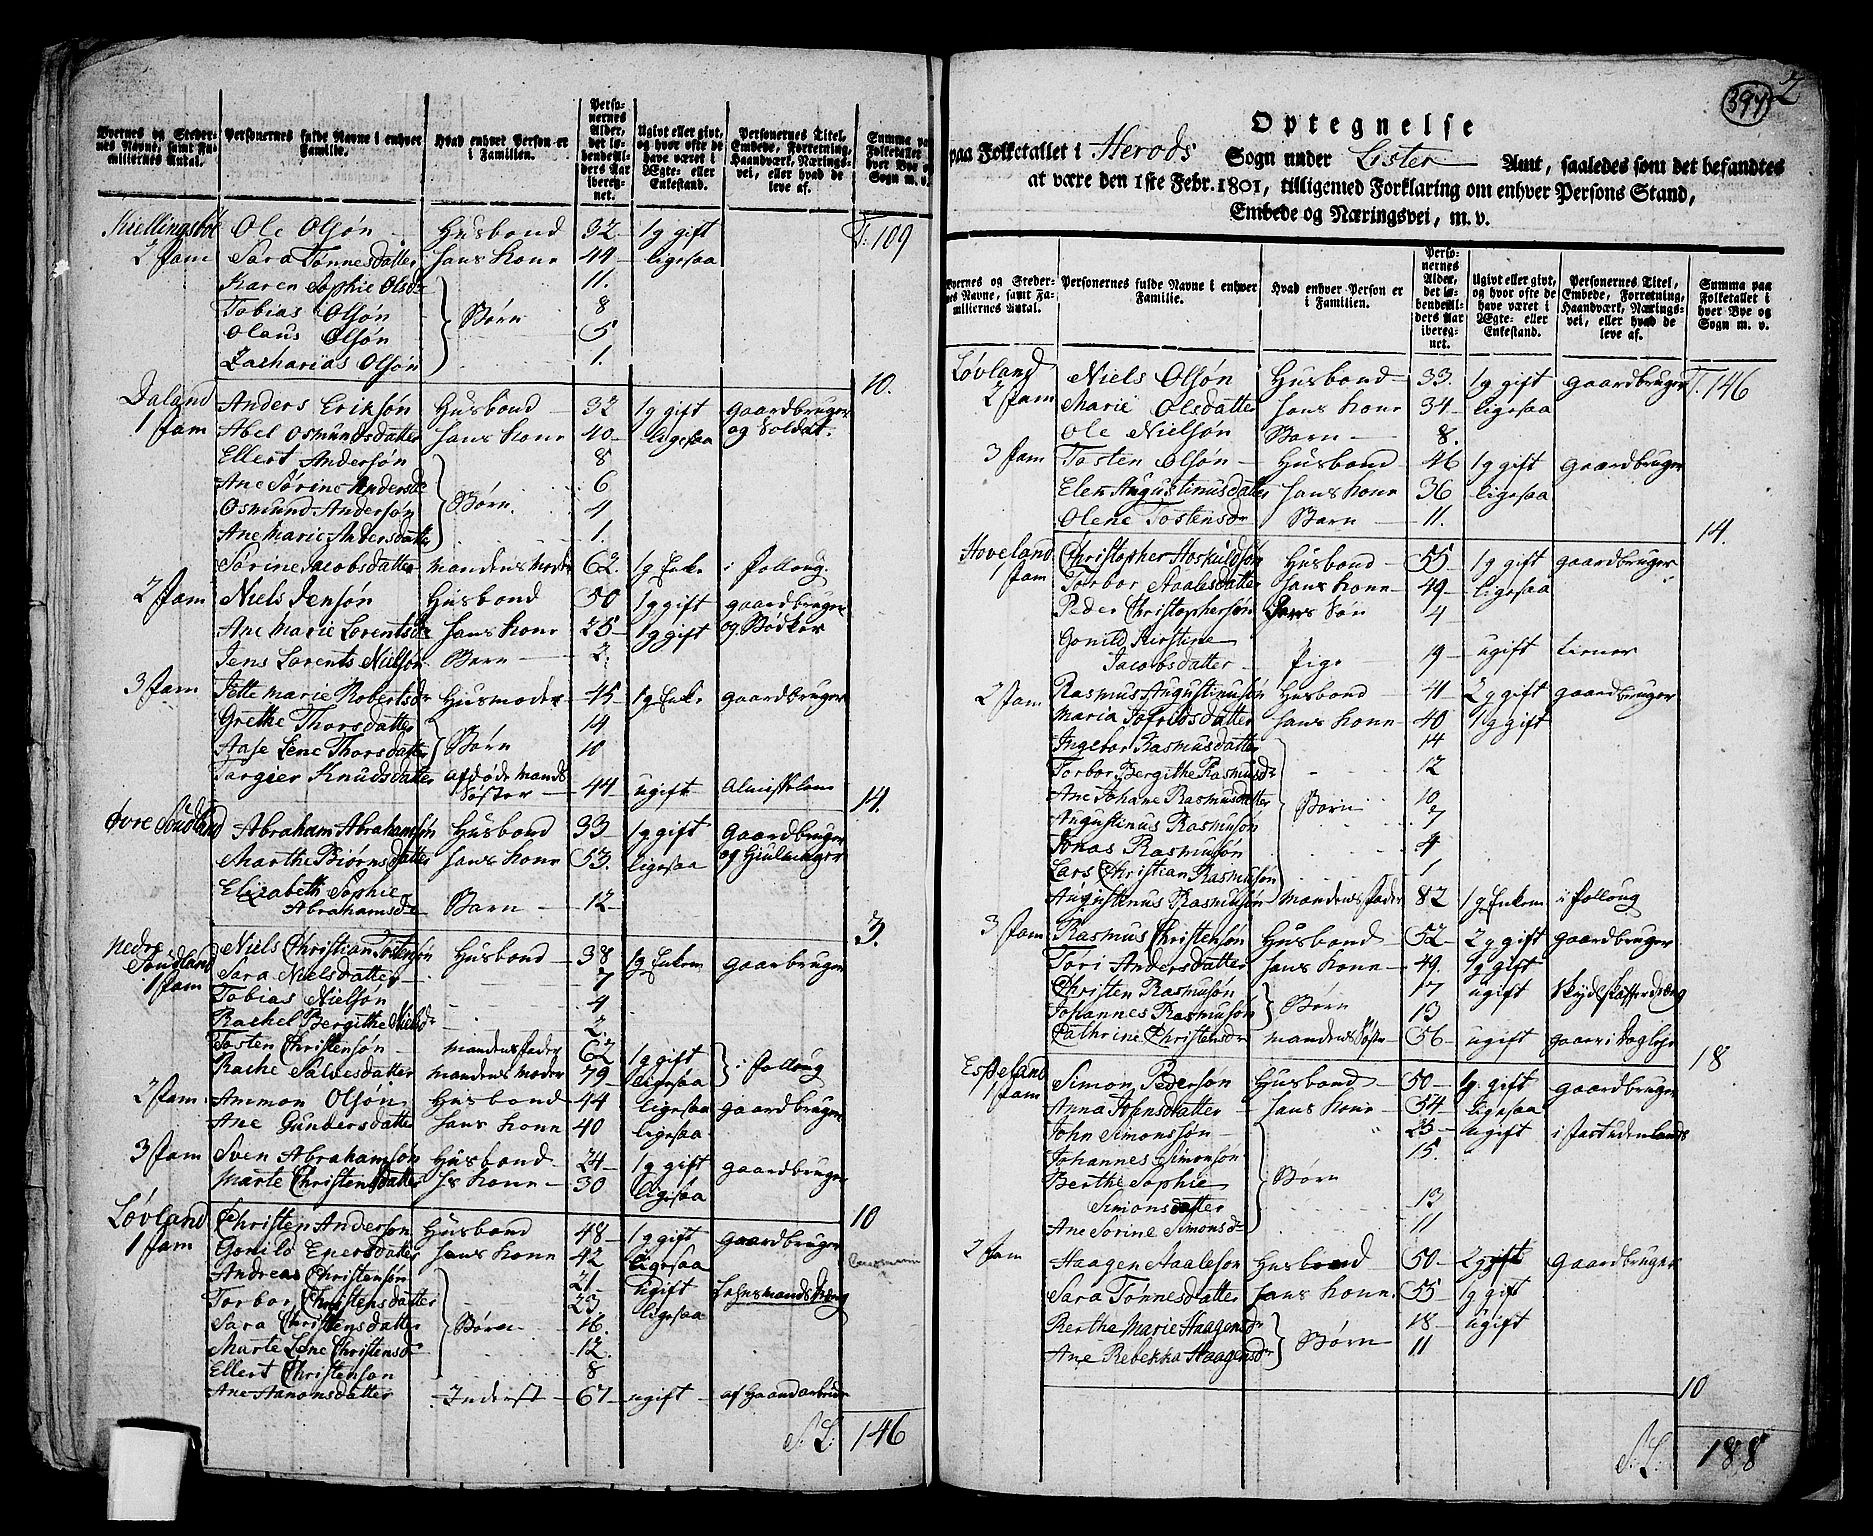 Byernes og Steder-
nes Navne, samt Fa-
miliernes Antal.
Personernes fulde Navne i enhver
Familie.
Hvad enhver Person er
i Familien.
Perso-
nernes
Alder,
det lø-
bende Al-
ders Aar
ibereg-
net.
Ugivt eller givt,
og hvor ofte de
have været i
Ægte- eller
Enkestand.
Personernes Titel,
Embede, Forretning,
Haandværk, Nærings-
vei, eller hvad de
leve af.
Summa paa
Folketallet i
hver Bye og
Sogn m. v.
Kiellingsböl Ole Olsøn Husbond 32 1 g gift T. 109
2 Fam Sara Tønnesdatter hans Kone 44 ligesaa
Karen Sophie Olsdr 11.
Tobias Olsøn Børn 8
Olaus Olsøn 5
Zacharias Olsøn 1.
10.
Daland Anders Eriksøn Husbond 32 1 g gift gaardbruger
1 Fam Abel Osmundsdatter hans Kone 40 ligesaa og Soldat.
Ellert Andersøn 8
Ane Sørine Andersdr 6
Osmund Andersøn Børn 4
Ane Marie Andersdatter 1.
Sørine Jacobsdatter mandens Moder 62. 1 g Enke i Folloug.
2 Fam Niels Jensøn Husbond 50 1 g gift gaardbruger
Ane Marie Lorentsdr hans Kone 25 1 g gift og Bødker
Jens Lorents Nielsøn Barn 2.
3 Fam Jette Marie Robertsdr Husmoder 45 1 g Enke gaardbruger
Grethe Thorsdatter 14
Aase Lene Thorsdatter Børn 10
Targier Knudsdatter afdøde Mands
Søster 44 ugift Almisselem
14.
Øvre Sundland Abraham Abrahamsøn Husbond 33 1 g gift Gaardbruger
Marthe Biørnsdatter hans Kone 53. ligesaa og Hjulmager
Elizabeth Sophie
Abrahamsdr Barn 12
3.
Nedre
Sundland Niels Christian Tostensøn Husbond 38 1 g Enkem gaarbruger
1 Fam Sara Nielsdatter 7
Tobias Nielsøn 4
Rachel Bergithe Nielsdr 2.
Tosten Christensøn mandens Fader 62 1 g gift i Folloug
Rache Salvesdatter mandens Moder 79 ligesaa
2 Fam Ammon Olsøn Husbond 44 ligesaa gaardbruger
Ane Gundersdatter hans Kone 40 ligesaa
3 Fam Sven Abrahamsøn Husbond 24 1 g gift gaardbruger
Marte Christensdatter hs Kone 30 ligesaa
10
Løvland Christen Andersøn Husbond 48 1 g gift gaardbruger
1 Fam Gonild Enersdatter hans Kone 42 ligesaa
Andreas Christensøn 21 ugift Lehnsmands Dreng
Torbor Christensdatter 23. ligesaa
Sara Christensdatter Børn 16.
Marte Lene Christensdr 12.
Ellert Christensøn 8
Ane Aanonsdatter Inderst 67 ugift af Haandarbeide
S. L. 146
397
2
Optegnelse
paa Folketallet i Herods Sogn under Lister Amt, saaledes som det befandtes
at være den 1ste Febr. 1801, tilligemed Forklaring om enhver Persons Stand,
Embede og Næringsvei, m. v.
Byernes og Steder-
nes Navne, samt Fa-
miliernes Antal.
Personernes fulde Navne i enhver
Familie.
Hvad enhver Person er
i Familien.
Perso-
nernes
Alder,
det lø-
bende Al-
ders Aar
ibereg-
net.
Ugivt eller givt,
og hvor ofte de
have været i
Ægte- eller
Enkestand.
Personernes Titel,
Embede, Forretning,
Haandværk, Nærings-
vei, eller hvad de
leve af.
Summa paa
Folketallet i
hver Bye og
Sogn m. v.
Løvland Niels Olsøn Husbond 33. 1 g gift gaardbruger T. 146
2 Fam Marie Olsdatter hans Kone 34 ligesaa
Ole Nielsøn Barn 8.
3 Fam Tosten Olsøn Husbond 46 1 g gift gaardbruger
Elen Augustinusdatter hans Kone 36 ligesaa
Olene Tostensdr Barn 11.
14.
Hoveland Christopher Hoskuldsøn Husbond 55 1 g gift gaardbruger
1 Fam Torbor Aaalesdatter hans Kone 49 ligesaa
Peder Christophersøn hans Søn 4
Gonild Kirstine
Jacobsdatter Pige 19 ugift tiener
2 Fam Rasmus Augustinusøn Husbond 41 2 g gift gaardbruger
Maria Tofridsdatter hans Kone 40 1 g gift
Ingebor Rasmusdatter 14
Torbor Bergithe Rasmusdr 12
Ane Johane Rasmusdatter Børn 10
Augustinus Rasmusøn 7
Jonas Rasmusøn 4
Lars Christian Rasmusøn 1
Augustinus Rasmusøn mandens Fader 82 1 g Enkem i Folloug
3 Fam Rasmus Christensøn Husbond 52 2 g gift gaardbruger
Tori Andersdatter hans Kone 49. 1 g gift
Christen Rasmusøn Børn 17 ugift Skydskafferdreng
Johannes Rasmusøn 13
Cathrine Christensdr mandens Søster 56 ugift gaar i Dagleje
18
Espeland Simon Pedersøn Husbond 50 1 g gift gaardbruger
1 Fam Anna Johnsdatter hans Kone 54 ligesaa
John Simonsøn 25 ugift i fart udenlands
Johannes Simonsøn 15.
Berthe Sophie Børn
Simonsdatter 13
Ane Sorine Simonsdr 11
2 Fam Haagen Aaalesøn Husbond 50 2 g gift gaardbruger
Sara Tønnesdatter hans Kone. 55 1 g gift
Berthe Marie Haagensdr Børn 18 ugift
Ane Rebekka Haagensdr 11
10
S. L. 188